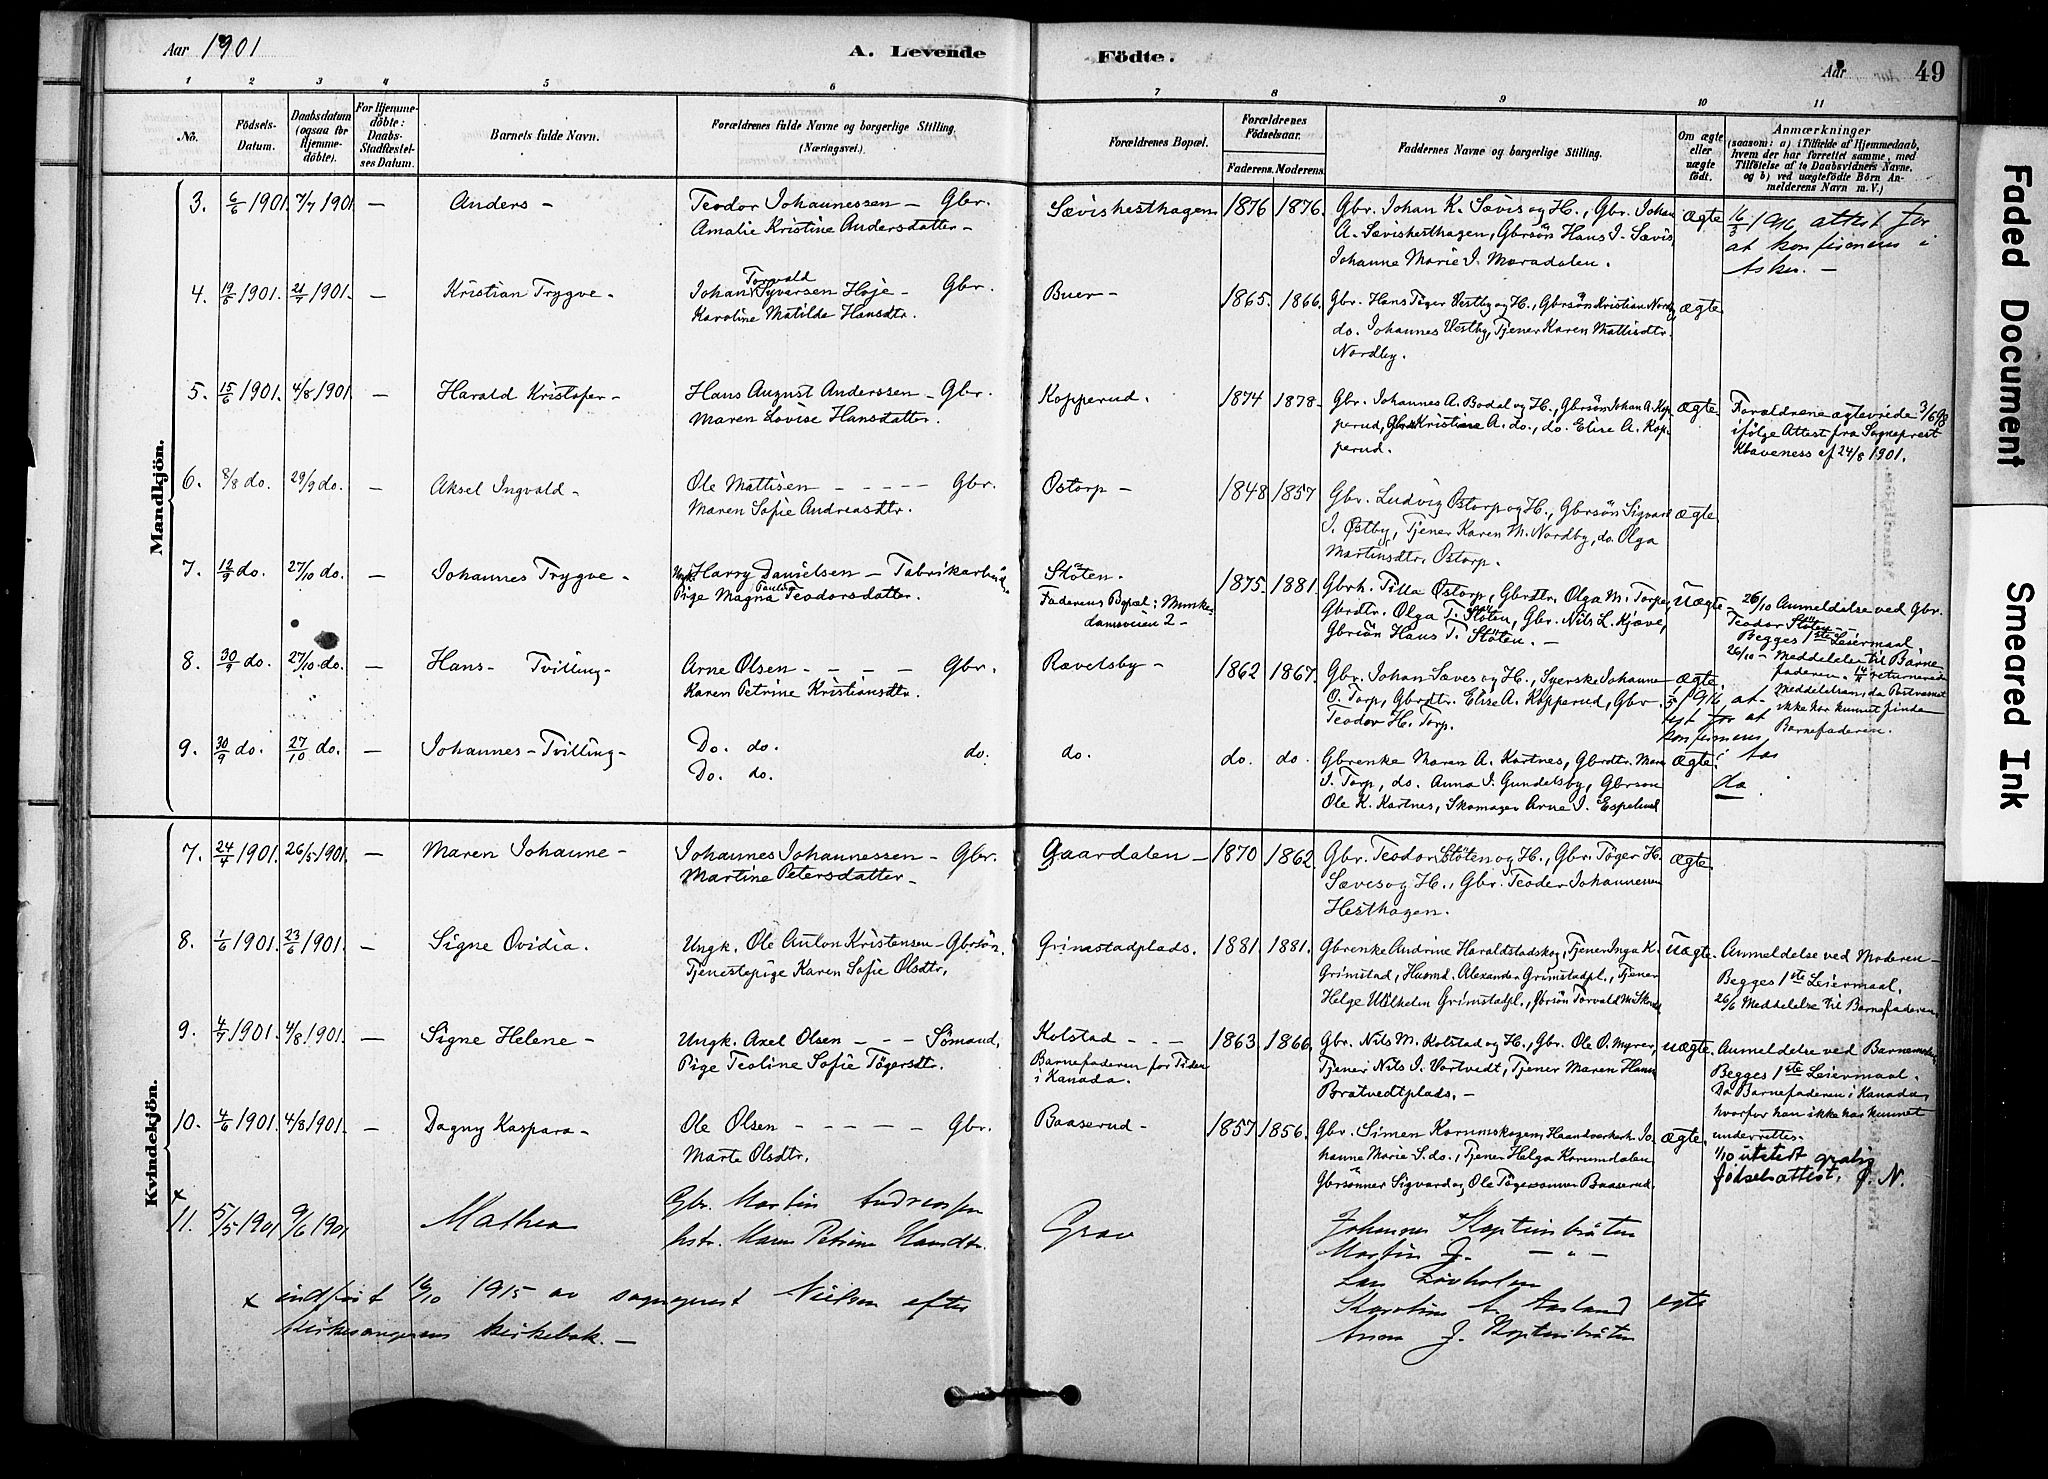 Aar 1901
A. Levende
Födte.
Aar
49
1
2
3
4
5
6
7
8
9
10
11
No.
Födsels-
Datum.
Daabsdatum
(ogsaa for
Hjemme-
döbte).
For Hjemme-
döbte:
Daabs-
Stadfæstel-
ses Datum.
Barnets fulde Navn.
Forældrenes fulde Navne og borgerlige Stilling.
(Næringsvei.)
Forældrenes Bopæl.
Forældrenes
Födselsaar.
Faderens.
Moderens.
Faddernes Navne og borgerlige Stilling.
Om ægte
eller
uægte
födt.
Anmærkninger
(saasom: a) i Tilfælde af Hjemmedaab,
hvem der har forrettet samme, med
Tilföielse af to Daabsvidners Navne,
og b) ved uægtefödte Börn An-
melderens Navn m. V.)
Mandkjön.
3. 6/6 1901. 7/7 1901 — Anders —
Teodor Johannessen — Gbr.
Amalie Kristine Andersdatter —
Sævishesthagen 1876 1876.
Gbr. Johan K. Sævis og H., Gbr. Johan
A. Sævishesthagen, Gbrsön Hans J. Sævis,
Johanne Marie J. Moradalen.
ægte
16/3 1916 attest for
at konfirmeres i
Asker. —
4. 19/6 1901. 21/7 1901. — Kristian Trygve —
Torvald
Johan Syversen Höje — Gbr.
Karoline Matilde Hansdtr.
Buer — 1865. 1866.
Gbr. Hans Töger Vestby og H., Gbrsön Kristian Nordby
do. Johannes Vestby, Tjener Karen Mattisdtr.
Nordby.
ægte
5. 15/6 1901. 4/8 1901. — Harald Kristofer —
Hans August Anderssen — Gbr.
Maren Lovise Hansdatter.
Kopperud. 1874 1878.
Gbr. Johannes A. Bodal og H., Gbrsön Johan A. Kop-
perud, Kristiane A. do., do. Elise A. Kop-
perud.
ægte
Forældrene ægteviede 3/6 98
ifölge Attest fra Sogneprest
Klaveness af 24/8 1901.
6. 8/8 do. 29/9 do. — Aksel Ingvald —
Ole Mattisen — — — — Gbr.
Maren Sofie Andreasdtr.
Ostorp — 1848 1857
Gbr. Ludvig Ostorp og H., Gbrsön Sigvard
J. Østby, Tjener Karen M. Nordby, do. Olga
Martinsdtr. Ostorp.
ægte
7. 12/9 do. 27/10 do. — Johannes Trygve —
Ungk. Harry Danielsen — Fabrikarbeid.
Pauline
Pige Magna Teodorsdatter.
Stöten.
Faderens Bopæl: Munke-
damsveien 2 —
1875. 1881.
Gbrh. Tilla Ostorp, Gbrdtr. Olga M. Torp,
Gbrdtr. Olga T. Stöten, Gbr. Nils L. Kjæve,
Gbrsön Hans T. Stöten. —
Uægte
26/10 Anmeldelse ved Gbr.
Teodor Stöten —
Begges 1ste Leiermaal
26/10 — Meddelelse til Barne-
faderen. returnerede
Meddelelsen, da Postvæsenet
ikke har kunnet finde
Barnefaderen.
8. 30/9 do. 27/10 do. — Hans — Tvilling —
Arne Olsen — — — Gbr.
Karen Petrine Kristiansdtr.
Ravelsby — 1862 1867.
Gbr. Johan Sæves og H., Syerske Johanne
O. Torp, Gbrdtr. Elise A. Kopperud, Gbr.
Teodor H. Torp.
ægte
1916 at-
test for at
konfirmeres
i Aas
9. 30/9 do. 27/10 do. — Johannes — Tvilling —
Do. do. do.
Do. do.
do. do. do.
Gbrenke Maren A. Kortnes, Gbrdtr. Mari
J. Torp, do. Anna J. Gundelsby, Gbrsön
Ole K. Kortnes, Skomager Arne J. Espelund
ægte
do
Kvindekjön.
7. 24/4 1901. 26/5 1901. — Maren Johanne —
Johannes Johannessen — Gbr.
Martine Petersdatter —
Gaardalen — 1870 1862
Gbr. Teodor Stöten og H., Gbr. Töger H.
Sæves og H., Gbr. Teodor Johannesen
Hesthagen.
ægte
8. 1/6 1901. 23/6 1901. — Signe Ovidia.
Ungk. Ole Anton Kristensen — Gbrsön.
Tjenestepige Karen Sofie Olsdtr.
Grimstadplads. 1881 1881.
Gbrenke Andrine Haraldstadskog, Tjener Inga K.
Grimstad, Husmd. Alexander Grimstadpl., Tjener
Helge Wilhelm Grimstadpl., Gbrsön Torvald M. Skou
Uægte
Anmeldelse ved Moderen —
Begges 1ste Leiermaal.
26/6 Meddelelse til Barnefaderen
9. 4/7 1901. 4/8 1901. — Signe Helene —
Ungk. Axel Olsen — — — Sömand,
Pige Teoline Sofie Tögersdtr.
Kolstad — — —
Barnefaderen for Tiden
i Kanada.
1863 1866.
Gbr. Nils M. Kolstad og H., Gbr. Ole O. Myrer,
Tjener Nils J. Vortvedt, Tjener Maren Hans
Bratvedtplads. —
uægte.
Anmeldelse ved Barnemoder
Begges 1ste Leiermaal.
Da Barnefaderen i Kanada,
hvorfor han ikke har kunnet
underrettes.
10. 4/6 1901 4/8 1901. — Dagny Kaspara —
Ole Olsen — — — — Gbr.
Marte Olsdtr.
Baaserud — 1857 1856.
Gbr. Simen Korumskogen, Haandverkerh. Jo-
hanne Marie S. do., Tjener Helga Korumdalen
Gbrsönner Sigvard og Ole Tögersönner Baaserud.
ægte.
1/10 utstedt gratis
födselsattest. J. N.
x
11. 5/5 1901 9/6 1901 Mathea
Gbr. Martin Andreassen
hstr. Maren Petrine Hansdtr.
Grav
Johannes Kopteinbråten
Martin J. — „ —
Lars Lövholen
Karoline A. Aasland
Anna J. Kopteinbråten
egte
x indført 16/10 1915 av sogneprest Nielsen efter
kirkesangerens kirkebok. —
Faded Document
Smeared Ink